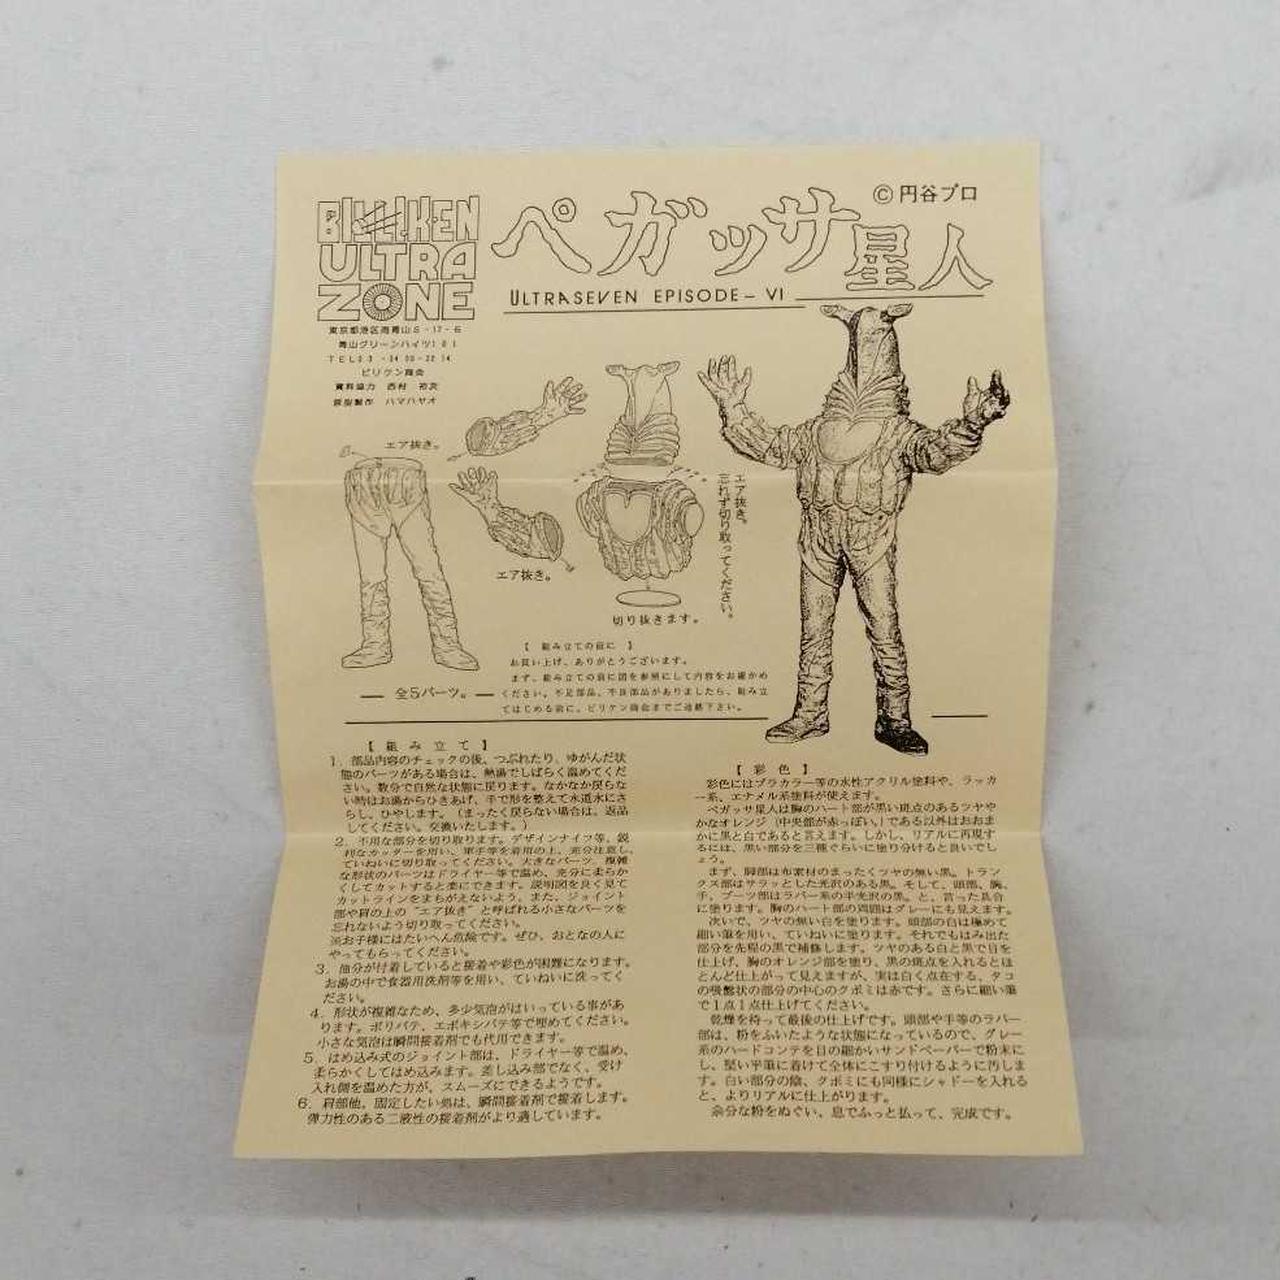 BILLIKEN
ULTRA
ZONE
東京都港区南青山5-17-6
青山グリーンハイツ101
ビリケン商会
資料協力 西村 祐次
原型製作 ハマハヤオ
©円谷プロ
ペガッサ星人
ULTRASEVEN EPISODE-VI
エア抜き。
エア抜き。
エア抜き。
忘れず切り取ってください。
切り抜きます。
全5パーツ。
【 組み立ての前に 】
お買い上げ、ありがとうございます。
まず、組み立ての前に図を参照にして内容をお確かめ
ください。不足部品、不良部品がありましたら、組み立
てはじめる前に、ビリケン商会までご連絡下さい。
【 組 み 立 て 】
1. 部品内容のチェックの後、つぶれたり、ゆがんだ状
態のパーツがある場合は、熱湯でしばらく温めてくだ
さい。数分で自然な状態に戻ります。なかなか戻らな
い時はお湯からひきあげ、手で形を整えて水道水にさ
らし、ひやします。(まったく戻らない場合は、返品
してください。交換いたします。)
2. 不用な部分を切り取ります。デザインナイフ等、鋭
利なカッターを用い、軍手等を着用の上、充分注意し、
ていねいに切り取ってください。大きなパーツ、複雑
な形状のパーツはドライヤー等で温め、充分に柔らか
くしてカットすると楽にできます。説明図を良く見て
カットラインをまちがえないよう、また、ジョイント
部や肩の上の“エア抜き”と呼ばれる小さなパーツを
忘れないよう切り取ってください。
※お子様にはたいへん危険です。ぜひ、おとなの人に
やってもらってください。
3. 油分が付着していると接着や彩色が困難になります。
お湯の中で食器用洗剤等を用い、ていねいに洗ってく
ださい。
4. 形状が複雑なため、多少気泡がはいっている事があ
ります。ポリパテ、エポキシパテ等で埋めてください。
小さな気泡は瞬間接着剤でも代用できます。
5. はめ込み式のジョイント部は、ドライヤー等で温め、
柔らかくしてはめ込みます。差し込み部でなく、受け
入れ側を温めた方が、スムーズにできるようです。
6. 肩部他、固定したい処は、瞬間接着剤で接着します。
弾力性のある二液性の接着剤がより適しています。
【 彩 色 】
彩色にはプラカラー等の水性アクリル塗料や、ラッカ
ー系、エナメル系塗料が使えます。
ペガッサ星人は胸のハート部が黒い斑点のあるツヤや
かなオレンジ(中央部が赤っぽい。)である以外はおおま
かに黒と白であると言えます。しかし、リアルに再現す
るには、黒い部分を三種ぐらいに塗り分けると良いでし
ょう。
まず、脚部は布素材のまったくツヤの無い黒。トラン
クス部はサラッとした光沢のある黒。そして、頭部、腕、
手、ブーツ部はラバー系の半光沢の黒。と、言った具合
に塗ります。胸のハート部の周囲はグレーにも見えます。
次いで、ツヤの無い白を塗ります。頭部の白は極めて
細い筆を用い、ていねいに塗ります。それでもはみ出た
部分を先程の黒で補修します。ツヤのある白と黒で目を
仕上げ、胸のオレンジ部を塗り、黒の斑点を入れるとほ
とんど仕上がって見えますが、実は白く点在する、タコ
の吸盤状の部分の中心のクボミは赤です。さらに細い筆
で1点1点仕上げてください。
乾燥を待って最後の仕上げです。頭部や手等のラバー
部は、粉をふいたような状態になっているので、グレー
系のハードコンテを目の細かいサンドペーパーで粉末に
し、堅い平筆に着けて全体にこすり付けるように汚しま
す。白い部分の陰、クボミにも同様にシャドーを入れる
と、よりリアルに仕上がります。
余分な粉をぬぐい、息でふっと払って、完成です。